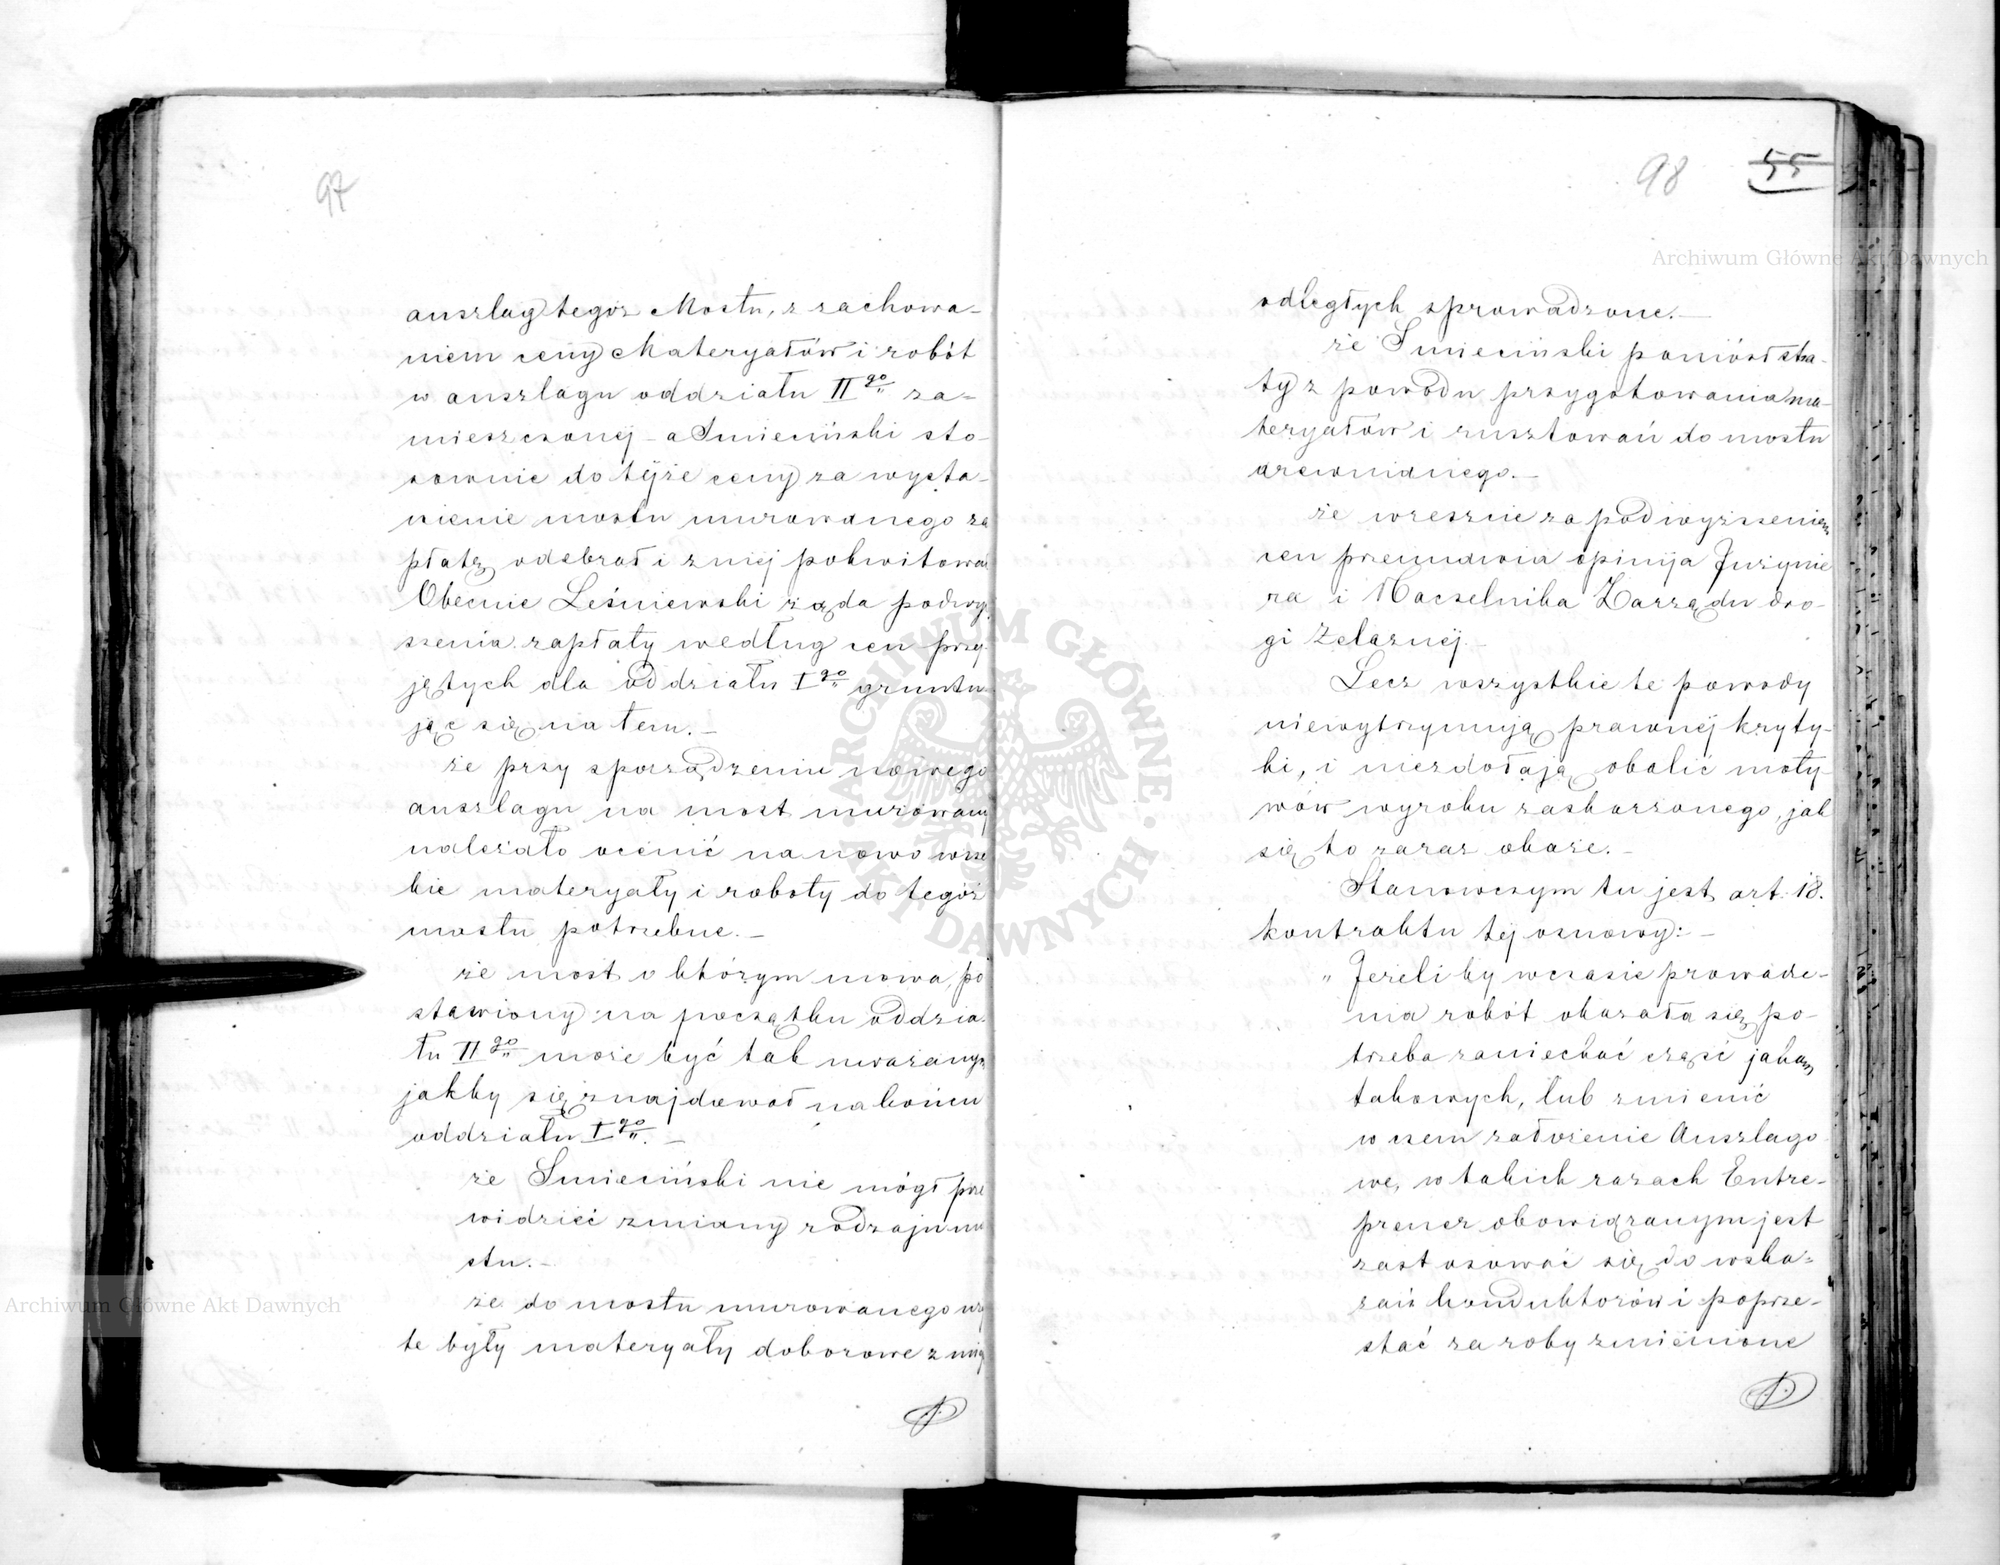 97
anszlag tegoż Mostu, z zachowa-
niem ceny Materyałów i robót
w anszlagu oddziału II go za-
mieszczonéj – a Smieciński sto-
sownie do téjże ceny za wysta-
wienie mostu murowanego za
płatę odebrał i z niéj pokwitował
Obecnie Leśniewski żąda podwy-
szenia zapłaty według cen przy-
jętych dla oddziału I go gruntu-
jąc się na tem. –
że przy sporządzeniu nowego
anszlagu na most murowany
należało ocenić na nowo wsze
kie materyały i roboty do tegoż
mostu potrzebne. –
że most o którym mowa, po
stawiony na początku oddzia-
łu II go może być tak uważany
jakby się znajdował na końcu
oddziału I go. –
że Smieciński nie mógł prze
widzieć zmiany rodzaju mo
stu. –
że do mostu murowanego uży
te były materyały doborowe z miejsc
98 55
odległych sprowadzone. –
że Smieciński poniósł stra-
ty z powodu przygotowania ma-
teryałów i rusztowań do mostu
drewnianego. –
że wreszcie za podwyższeniem
cen przemawia opinija Inżynie
ra i Naczelnika Zarządu dro-
gi żelaznéj. –
Lecz wszystkie te powody
niewytrzymują prawnéj kryty-
ki, i niezdołają obalić moty-
wów wyroku zaskarżonego, jak
się to zaraz okaże. –
Stanowczym tu jest art. 18.
kontraktu téj osnowy: –
„Jeżeliby wczasie prowadze-
nia robót okazała się po-
trzeba zaniechać część jaką
takowych, lub zmienić
w czem założenie Anszlago
we, w takich razach Entre-
prener obowiązanym jest
zastosować się do wska-
zań konduktorów i poprze-
stać za roby zmienione
Archiwum Główne Akt Dawnych
Archiwum Główne Akt Dawnych
ARCHIWUM GŁÓWNE AKT DAWNYCH